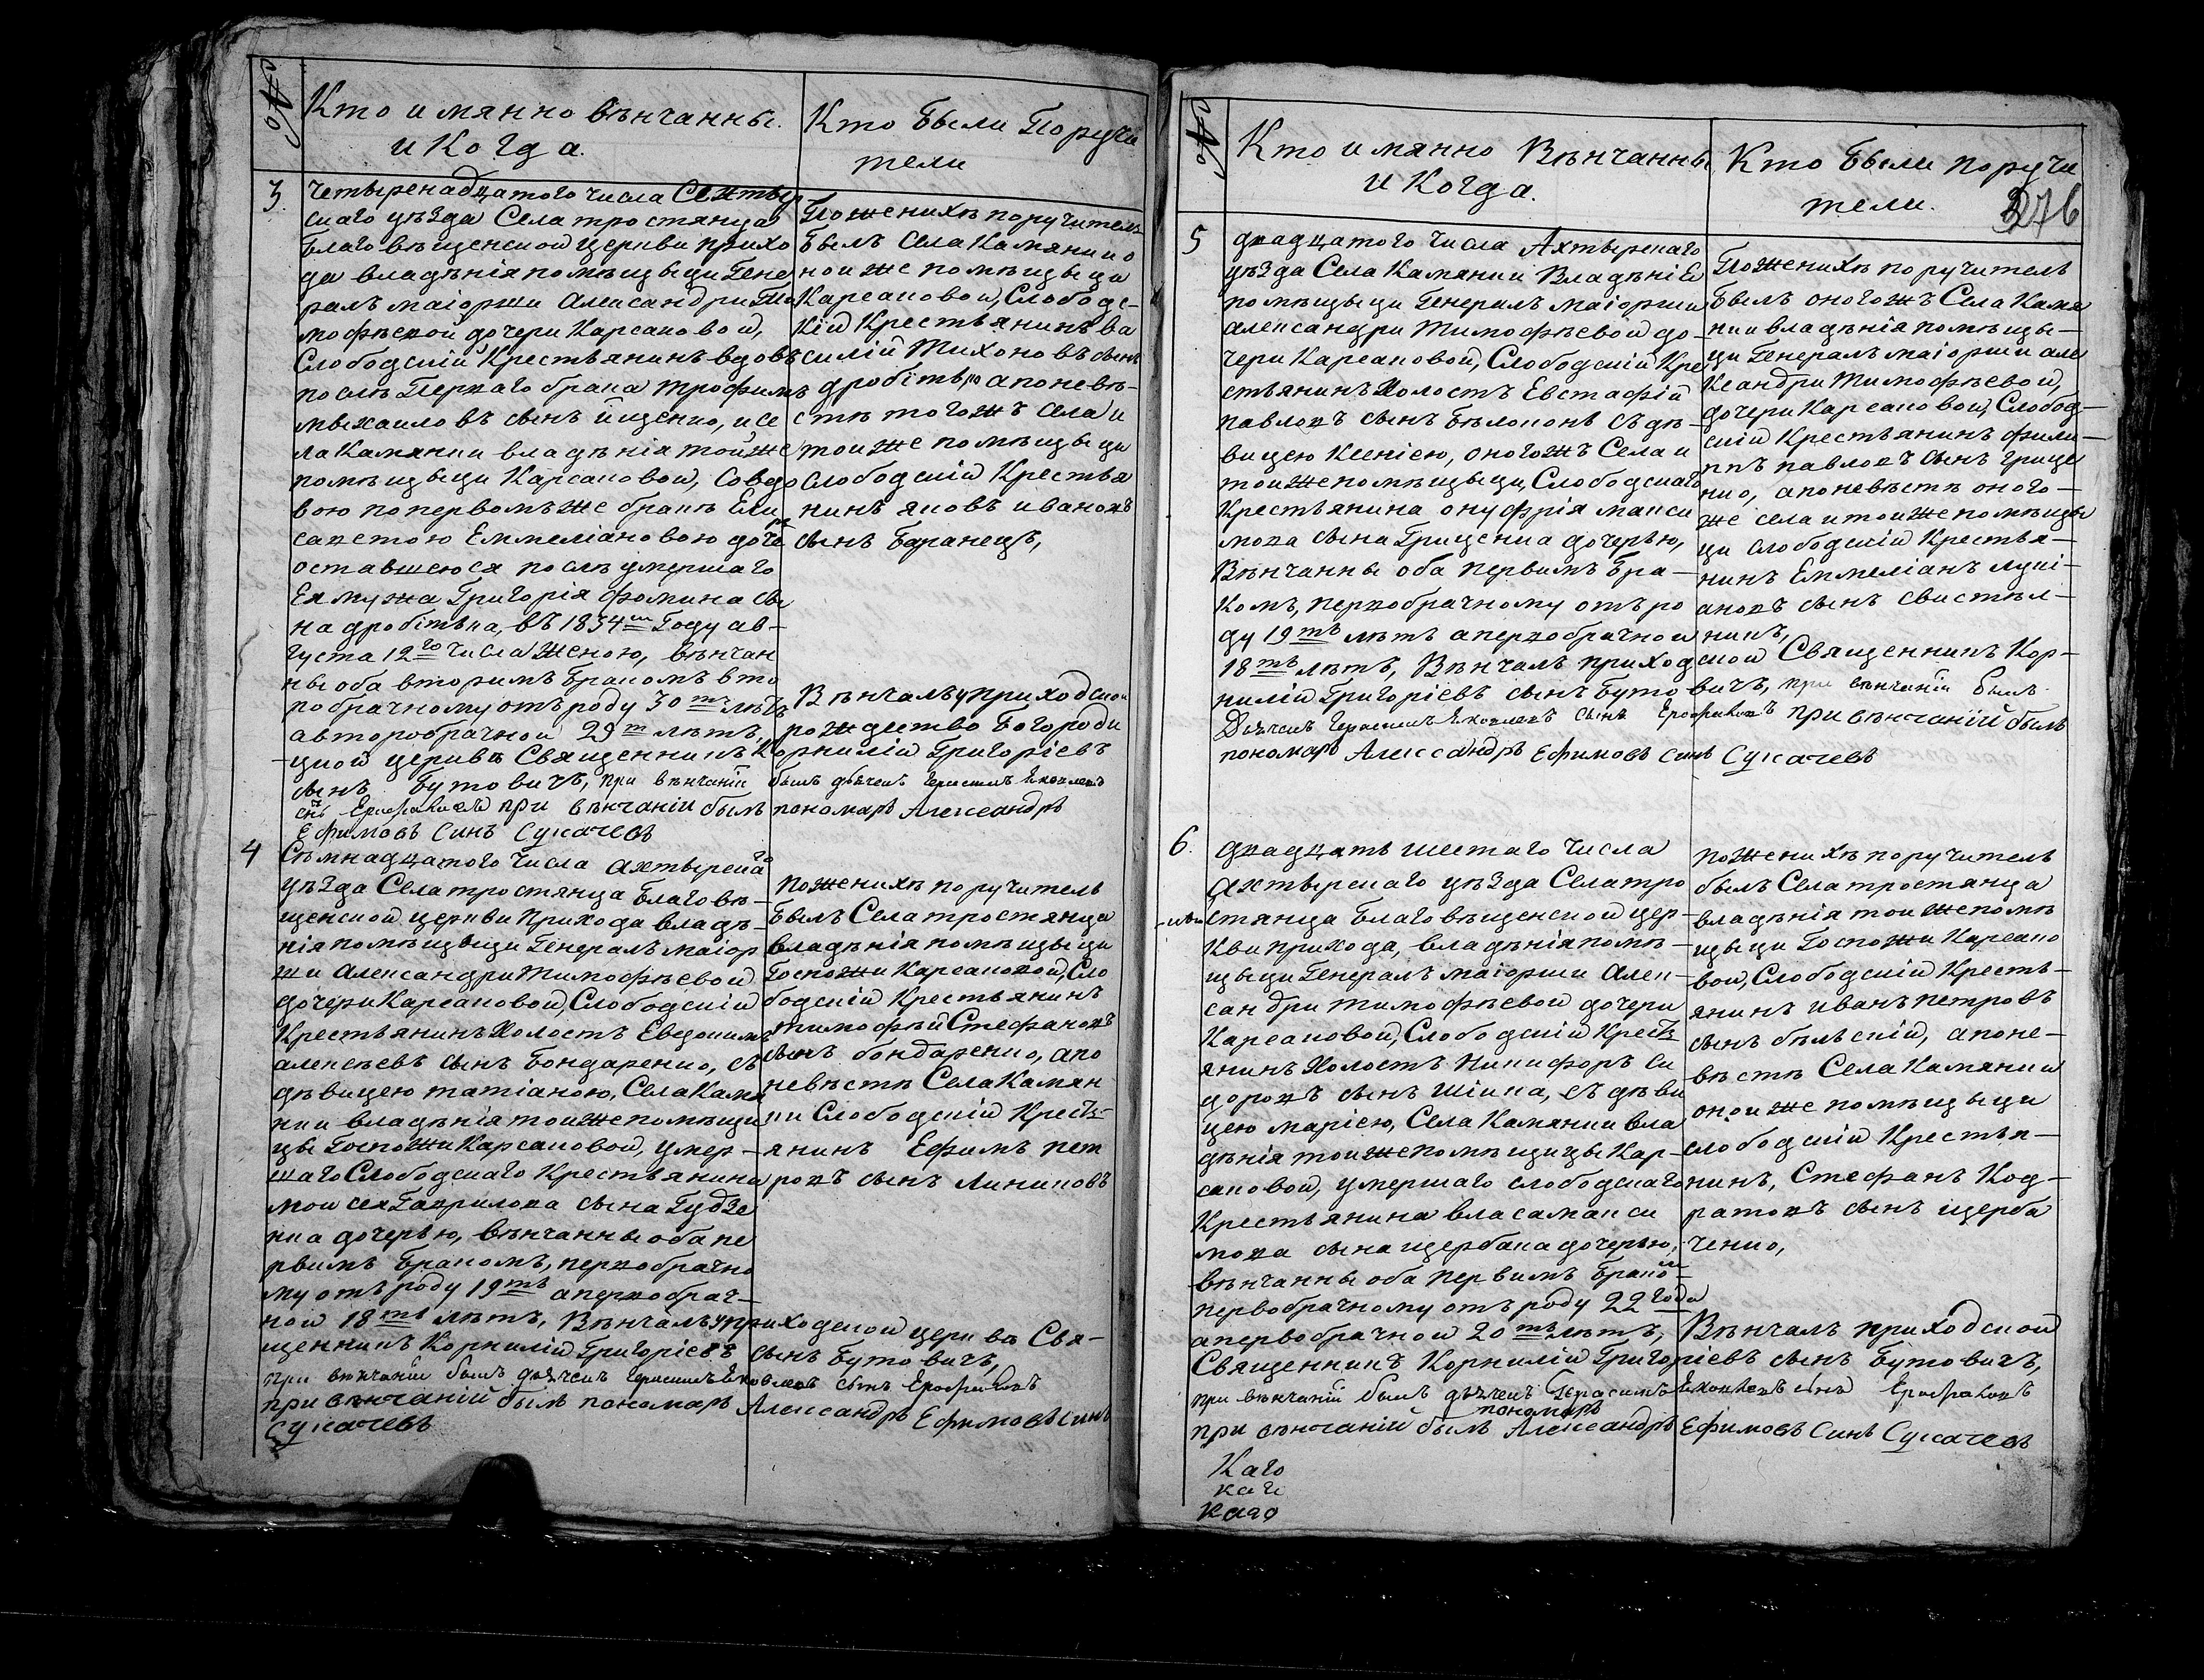 №
Кто имянно венчанны.
и Когда.
Кто были Поручи
тели
3.
четыренадцатого числа Ахтыр
скаго уезда Села тростянца
Благовѣщенской Церкви прихо
да владѣнія помѣщыци Гене
ралъ маіорши Александри Ти
мофѣевой дочери Карсаковой,
Слободскій Крестьянинъ вдовъ
послѣ Перваго брака Трофимъ
михаиловъ сынъ йщенко, и се
ла Камянки владѣнія той же
помѣщыци Карсаковой, Совдо
вою по первомъ же бракѣ Ели
саветою Еммеліановою дочер
оставшеюся послѣ умершаго
Ея мужа Григорія Фомина сы
на дробітька, въ 1834м Году ав-
густа 12го числа Женою, вѣнчан
ны оба вторимъ бракомъ вто
робрачному отъ роду 30ть лѣтъ
а второбрачной 29т лѣтъ,
По Женихѣ поручитель
былъ Села Камянки о
ной же помѣщыци
Карсаковой, Слободс-
кій Крестьянинъ ва
силій Тихоновъ сынъ
дробітько а по невѣ-
стѣ того жъ села и
той же помѣщыци
Слободскій Крестья
нинъ яковъ ивановъ
сынъ Баранецъ,
Вѣнчалъ у приходской
рождество Богороди
цкой церквѣ Священникъ Корнилій Григоріевъ
сынъ Бутовичъ, при вѣнчаніи былъ дьячекъ Герасимъ Яковлевъ
снъ Ерофаловъ при вѣнчаніи былъ пономарь Александръ
Ефимовъ Синъ Сукачевъ
4
Сѣмнадцатого числа ахтырска го
уѣзда Села тростянца Благовѣ-
щенской церкви Прихода владѣ-
нія помѣщыци Генералъ маіор
ши Александри Тимофѣевой
дочери Карсаковой, Слободскій
Крестьянинъ Холостъ Евдокимъ
алексѣевъ сынъ бондаренко, съ
дѣвицею татіаною, Села Камя
нки владѣнія той же помѣщи
цы Госпожи Карсаковой, умер-
шаго Слободскаго Крестьянина
моисея Гаврилова сына Гудзе
нка дочерью, вѣнчанны оба пе
рвимъ бракомъ, первобрачно
му отъ роду 19ть а первобрач-
ной 18ть лѣтъ, Вѣнчалъ у приходской церквѣ Свя-
щенникъ Корнилій Григоріевъ сынъ Бутовичъ,
при вѣнчаніи былъ дьячекъ Герасимъ Яковлевъ сынъ Ерофаловъ
при вѣнчаній былъ пономарь Александръ Ефимовъ синъ
Сукачевъ
по женихѣ поручитель
былъ Села тростянца
владѣнія помѣщыци
Госпожи Карсаковой, Сло
бодскій Крестьянинъ
тимофѣй Стефановъ
сынъ бондаренко, а по
невѣстѣ Села Камян
ки Слободскій Кресть-
янинъ Ефимъ пет
ровъ сынъ Линиковъ
№
Кто имянно Вѣнчанны
и Когда.
Кто были поручи
тели.
276
5
двадцатого числа Ахтырскаго
уѣзда Села Камянки Владѣніи
помѣщыци Генералъ маіорши
александри Тимофѣевой до-
чери Карсаковой, Слободскій Кре
стьянинъ Холостъ Евстафій
павловъ сынъ Бѣлоконь съ дѣ-
вицею Ксеніею, оного жъ Села и
той же помѣщыци, Слободскаго
Крестьянина онуфрія макси
мова сына Грищенка дочерью,
Вѣнчанны оба первимъ бра-
комъ, первобрачному отъ ро
ду 19ть лѣтъ а первобрачной
18ть лѣтъ, Вѣнчалъ приходской Священникъ Кор-
нилій Григоріевъ сынъ Бутовичъ, при вѣнчаніи былъ
Дьячекъ Герасимъ Яковлевъ сынъ Ерофаловъ при вѣнчаній былъ
пономарь Александръ Ефимовъ синъ Сукачевъ
По Женихѣ поручитель
былъ оного жъ Села Камя
нки владѣнія помѣщы-
ци Генералъ маіорши але
Ксандри Тимофѣевой,
дочери Карсаковой, Слобод-
скій Крестьянинъ фили-
ппъ павловъ сынъ грище
нко, а по невѣстѣ оного-
же села и той же помѣщы
ци Слободскій Крестья-
нинъ Еммеліанъ лукі-
ановъ сынъ Свистѣл-
никъ,
6.
двадцать шестаго числа
Ахтырскаго уѣзда Села тро
стянца Благовѣщенской цер-
кви прихода, владѣнія помѣ-
щыци Генералъ маіорши Алек-
сандри тимофѣевой дочери
Карсаковой, Слободскій Кресть
янинъ Холостъ Никифоръ Си
доровъ сынъ Шіика, съ дѣви
цею маріею, Села Камянки вла
дѣнія той же помѣщицы Кар-
саковой, умершаго слободскаго
Крестьянина власа макси
мова сына щербака дочерью,
вѣнчанны оба первимъ бракомъ
первобрачному отъ роду 22 года
а первобрачной 20ть лѣтъ, Вѣнчалъ приходской
Священникъ Корнилій Григоріевъ сынъ Бутовичъ,
при вѣнчаній былъ дьячекъ Герасимъ Яковлевъ сынъ Ерофаловъ
при вѣнчаніи былъ пономарь Александръ Ефимовъ Синъ Сукачевъ
по женихѣ поручитель
былъ Села тростянца
владѣнія той же помѣ
щыци Госпожи Карсако
вой, Слободскій Кресть-
янинъ Иванъ петровъ
сынъ бѣлскій, а по не-
вѣстѣ Села Камянки
оной же помѣщыци
слободскій Крестья-
нинъ, Стефанъ Код-
ратовъ сынъ щерба
ченко,
Каго
каго
Каго